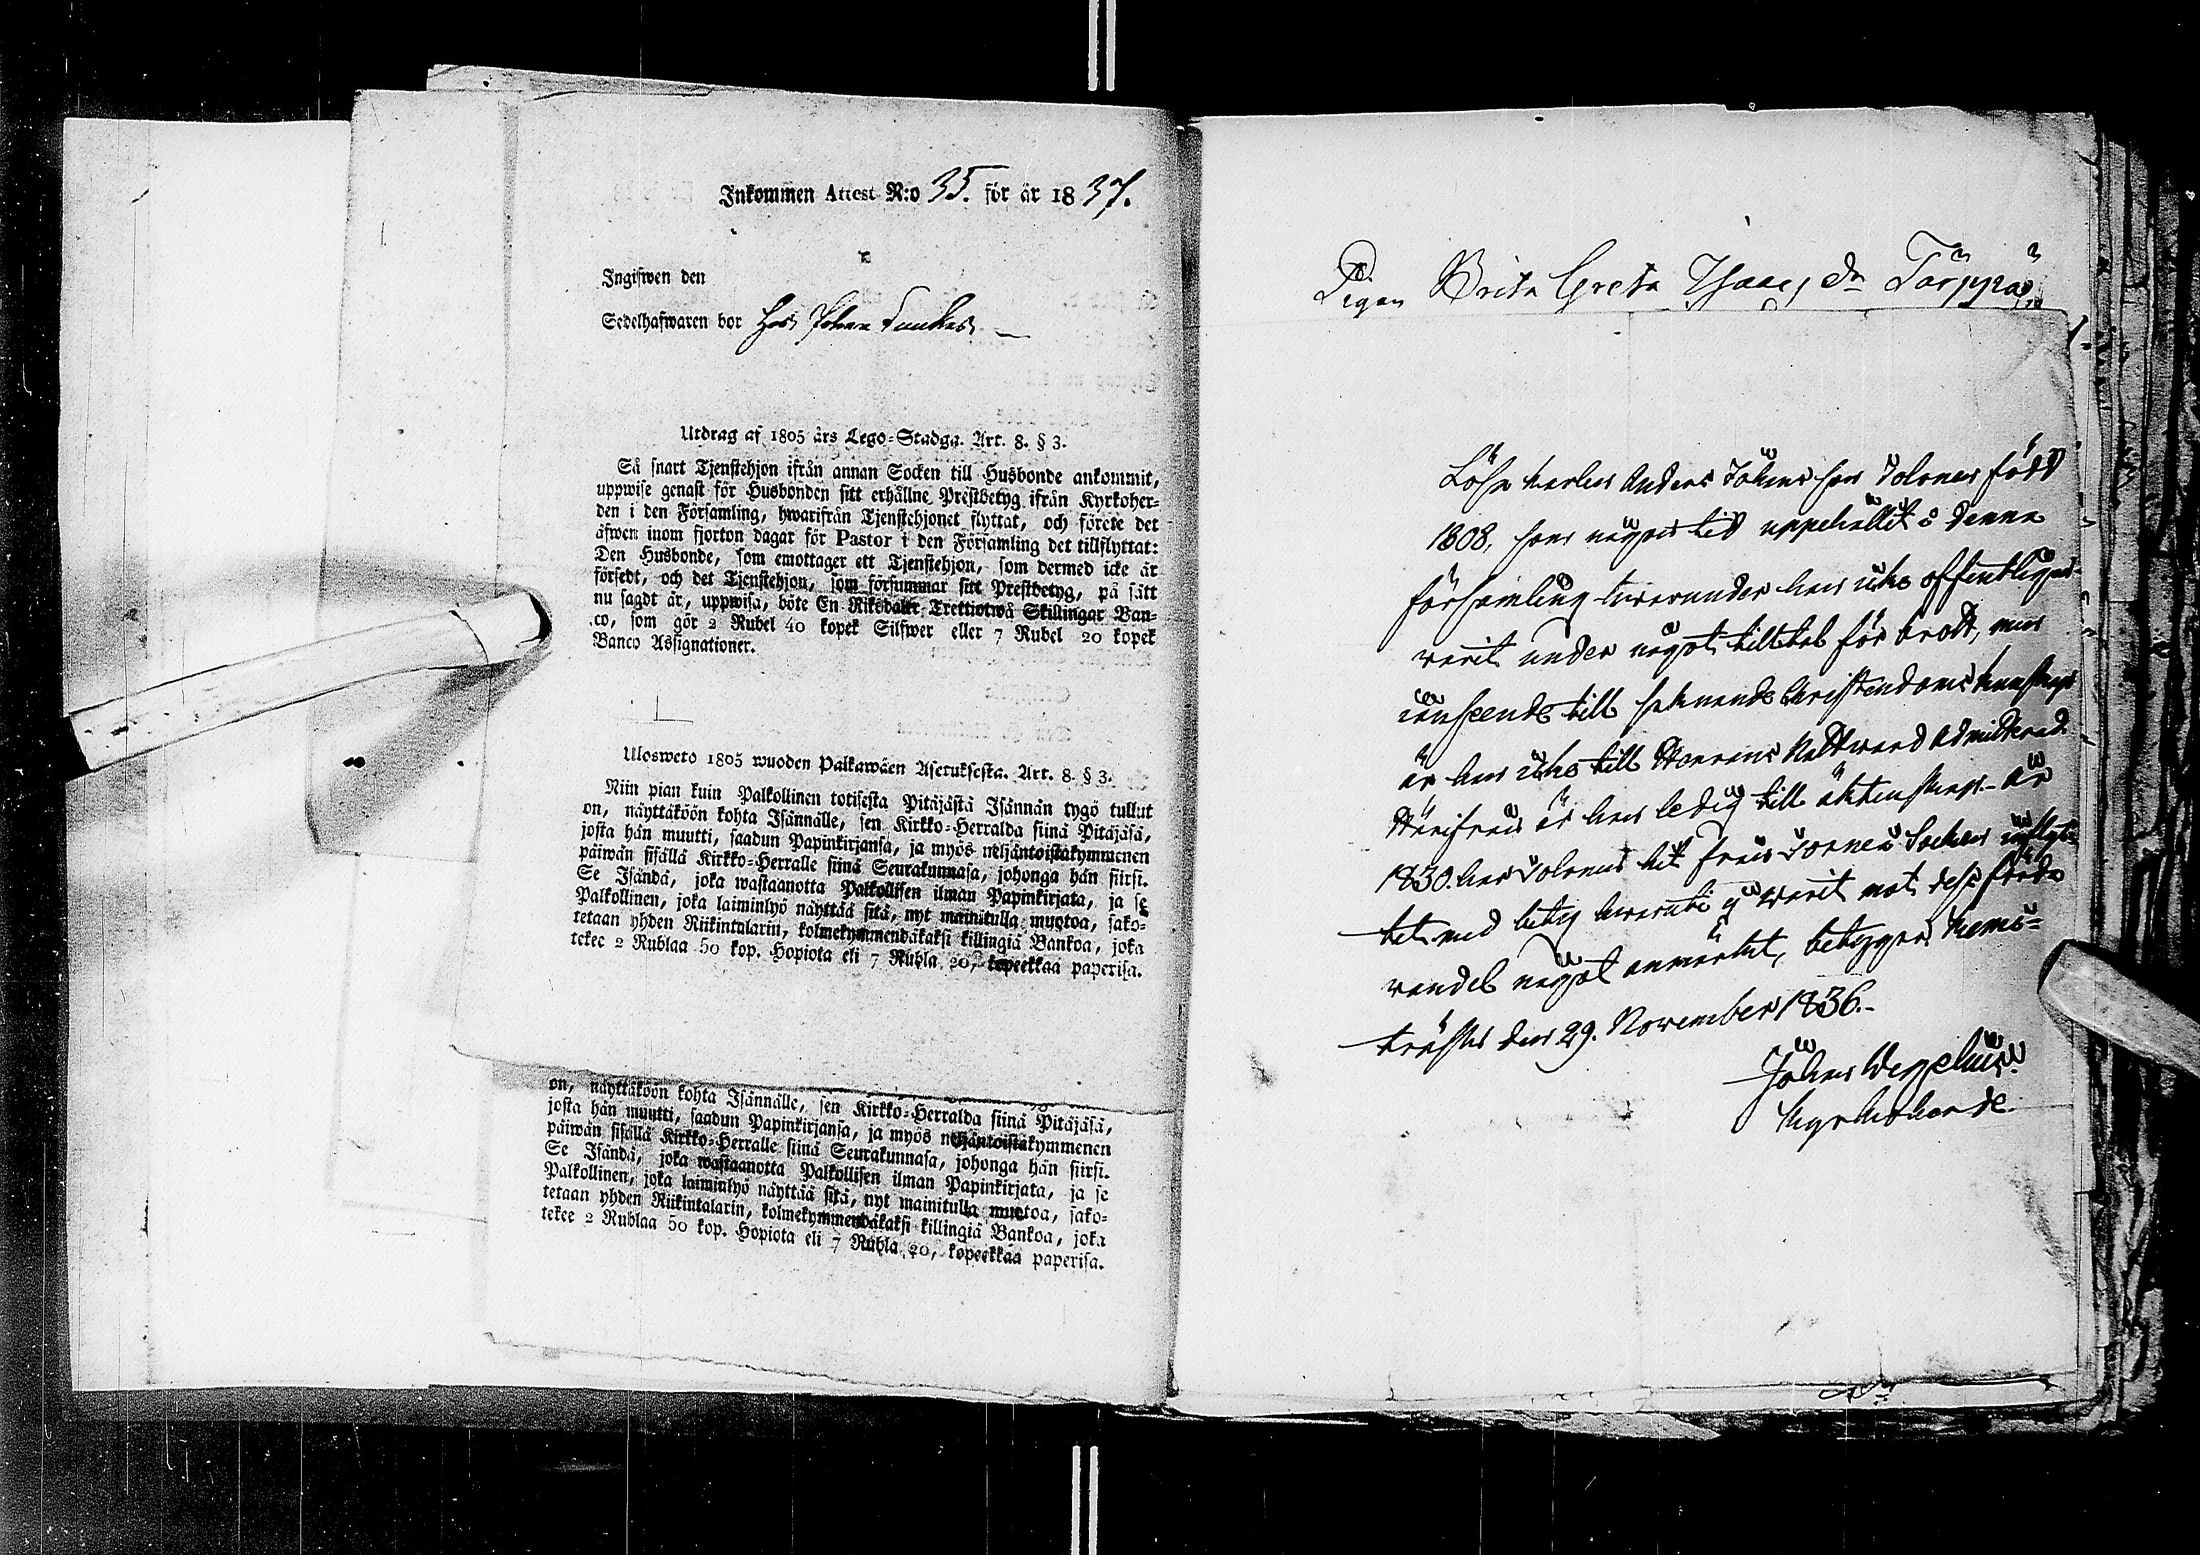 Inkommen Attest N:o 35. för år 1837.
Ingifwen den
Sedelhafwaren bor Hos Johan
Utdrag af 1805 års Lego-Stadga. Art. 8. § 3.
Så snart Tjenstehjon ifrån annan Socken till Husbonde ankommit,
uppwise genast för Husbonden sitt erhållne Prestbetyg ifrån Kyrkoher-
den i den Församling, hwarifrån Tjenstehjonet flyttat, och förete det
äfwen inom fjorton dagar för Pastor i den Församling det tillflyttat:
Den Husbonde, som emottager ett Tjenstehjon, som dermed icke är
försedt, och det Tjenstehjon, som försummar sitt Prestbetyg, på sätt
nu sagdt är, uppwisa, böte En Riksdaler Trettiotwå Skillingar Ban-
co, som gör 2 Rubel 40 kopek Silfwer eller 7 Rubel 20 kopek
Banco Assignationer.
Ulosweto 1805 wuoden Palkawäen Asetuksesta. Art. 8. § 3.
Niin pian kuin Palkollinen totisesta Pitäjästä Isännän tygö tullut
on, näyttäköön kohta Isännälle, sen Kirkko-Herralda siinä Pitäjäsä,
josta hän muutti, saadun Papinkirjansa, ja myös neljäntoistakymmenen
päiwän sisällä Kirkko-Herralle siinä Seurakunnasa, johonga hän siirsi.
Se Isändä, joka wastaanotta Palkollisen ilman Papinkirjata, ja se
Palkollinen, joka laiminlyö näyttää sitä, nyt mainitulla muotoa, sako-
tetaan yhden Riikintalarin, kolmekymmendäkaksi killingiä Bankoa, joka
tekee 2 Rublaa 50 kop. Hopiota eli 7 Rubla 20, kopeekkaa paperisa.
on, näyttäköön kohta Isännälle, sen Kirkko-Herralda siinä Pitäjäsä,
josta hän muutti, saadun Papinkirjansa, ja myös neljäntoistakymmenen
päiwän sisällä Kirkko-Herralle siinä Seurakunnasa, johonga hän siirsi.
Se Isändä, joka wastaanotta Palkollisen ilman Papinkirjata, ja se
Palkollinen, joka laiminlyö näyttää sitä, nyt mainitulla muotoa, sako-
tetaan yhden Riikintalarin, kolmekymmendäkaksi killingiä Bankoa, joka
tekee 2 Rublaa 50 kop. Hopiota eli 7 Rubla 20, kopeekkaa paperisa.
Pigan Brita Greta Isaacs dr
Löskarlen Anders Johansson Tolonen född
1808, som någon tid uppehållit å denna
församling hwarunder han icke offentligen
warit under något tilltal för brott, men
i anseende till saknande Christendoms kunskap
är han icke till Herrans Nattward admitterad.
Härifrån är han ledig till äktenskap. År
1830. har Tolonen hit från Torneå Socken inflyt-
tat med betyg hwaruti ej warit mot dess förda
wandel något anmärkt, betygar, Kemi-
träsk den 29. November 1836.
Johan Wegelius.
Kyrkoherde.